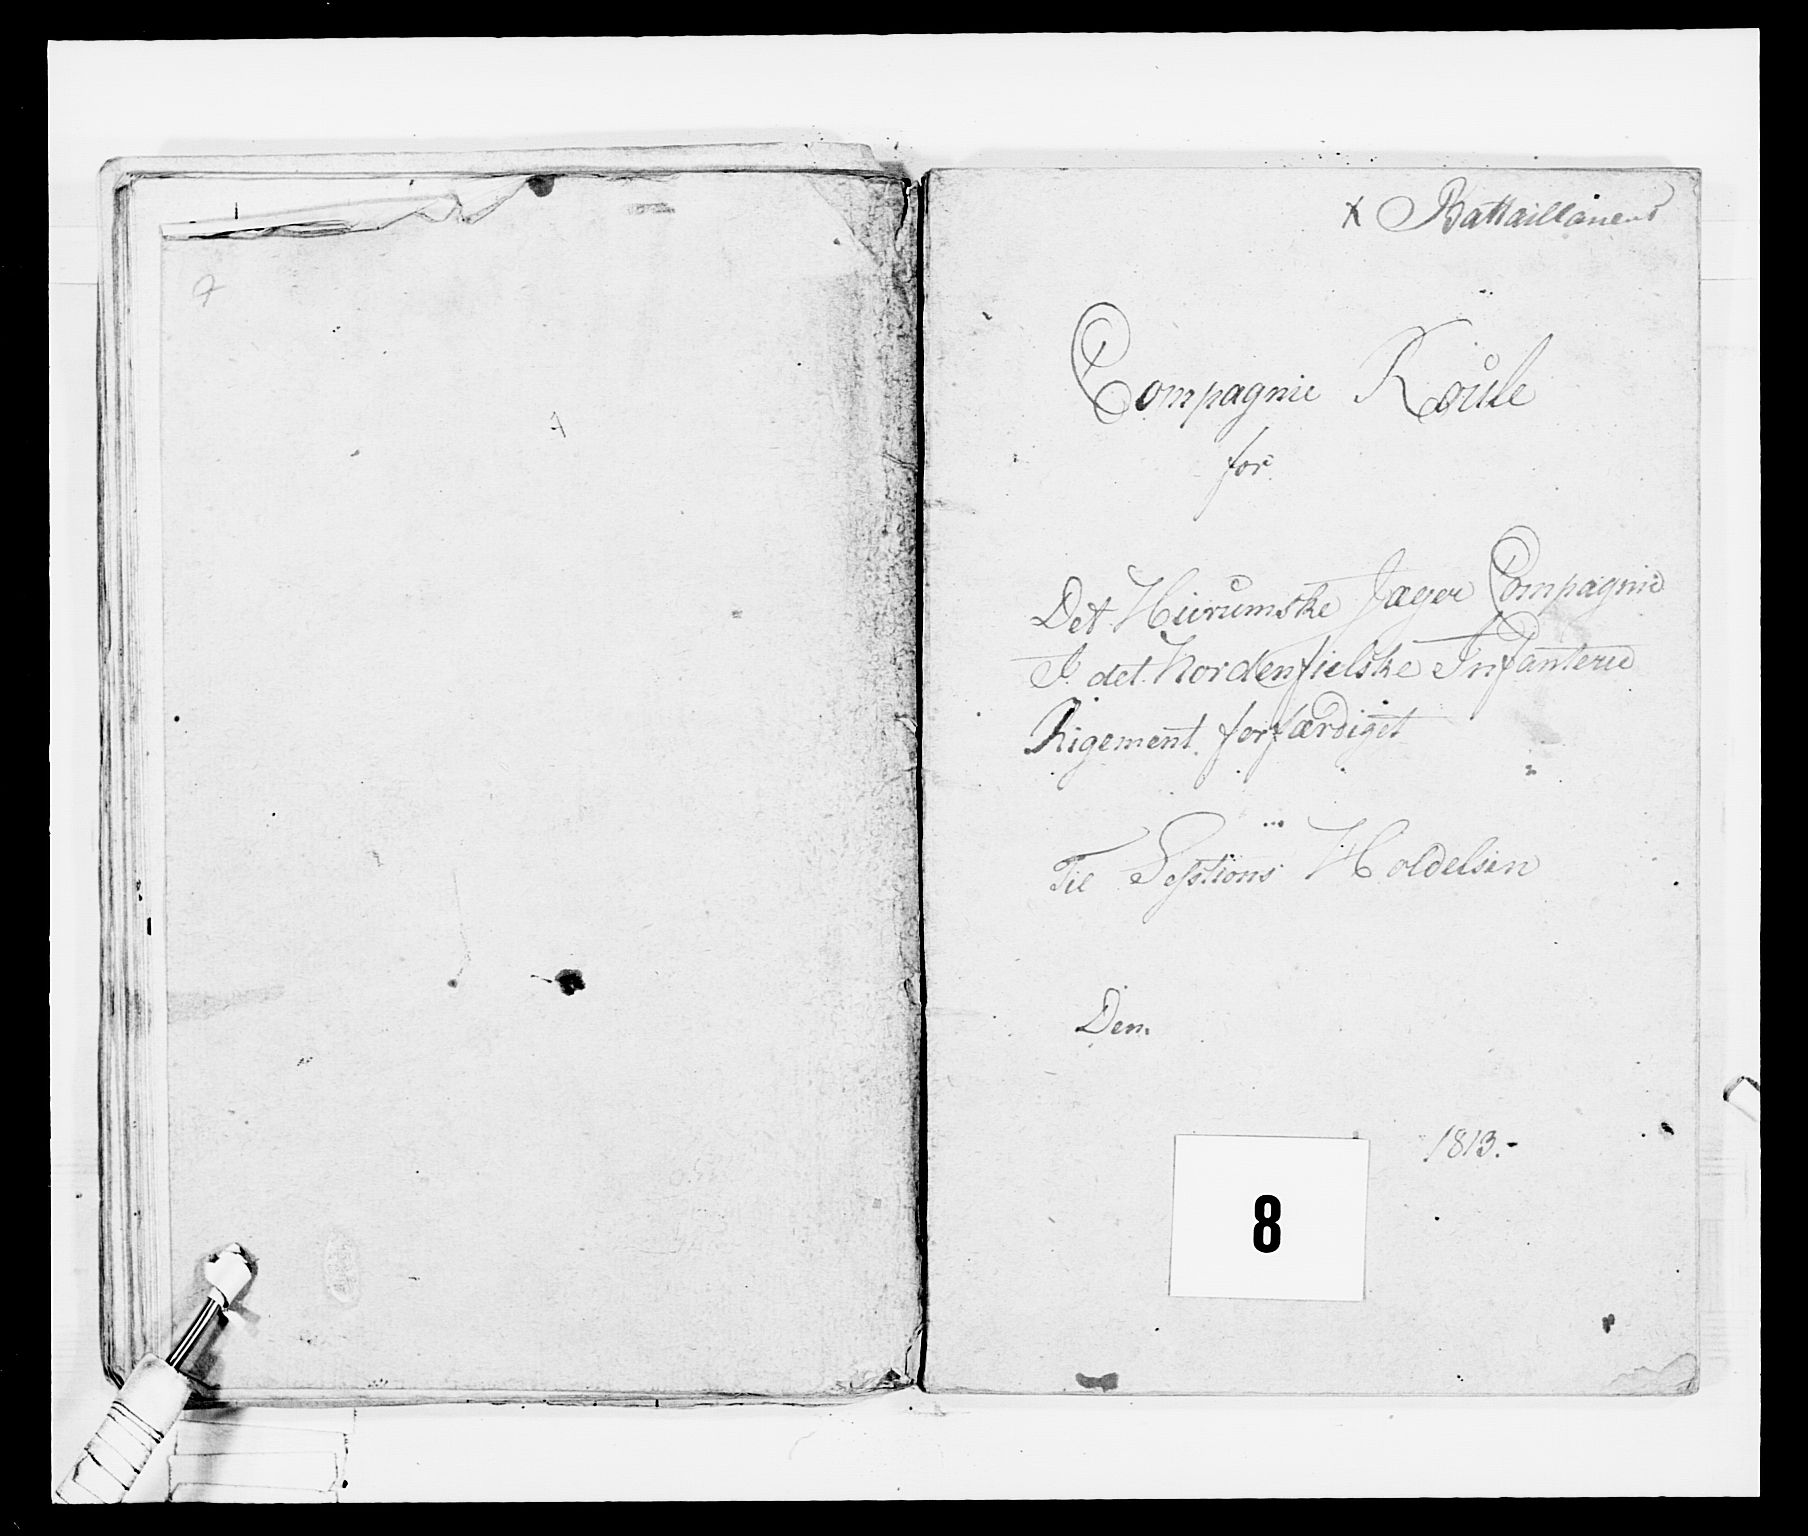 x Battaillånens
Compagnie Roule
for
Det Hierumske Jæger Compagnie
I det Nordenfielske Infanterie
Rigement forfærdiget
Til Sesstions Holdelsen
Den
1813.-
8